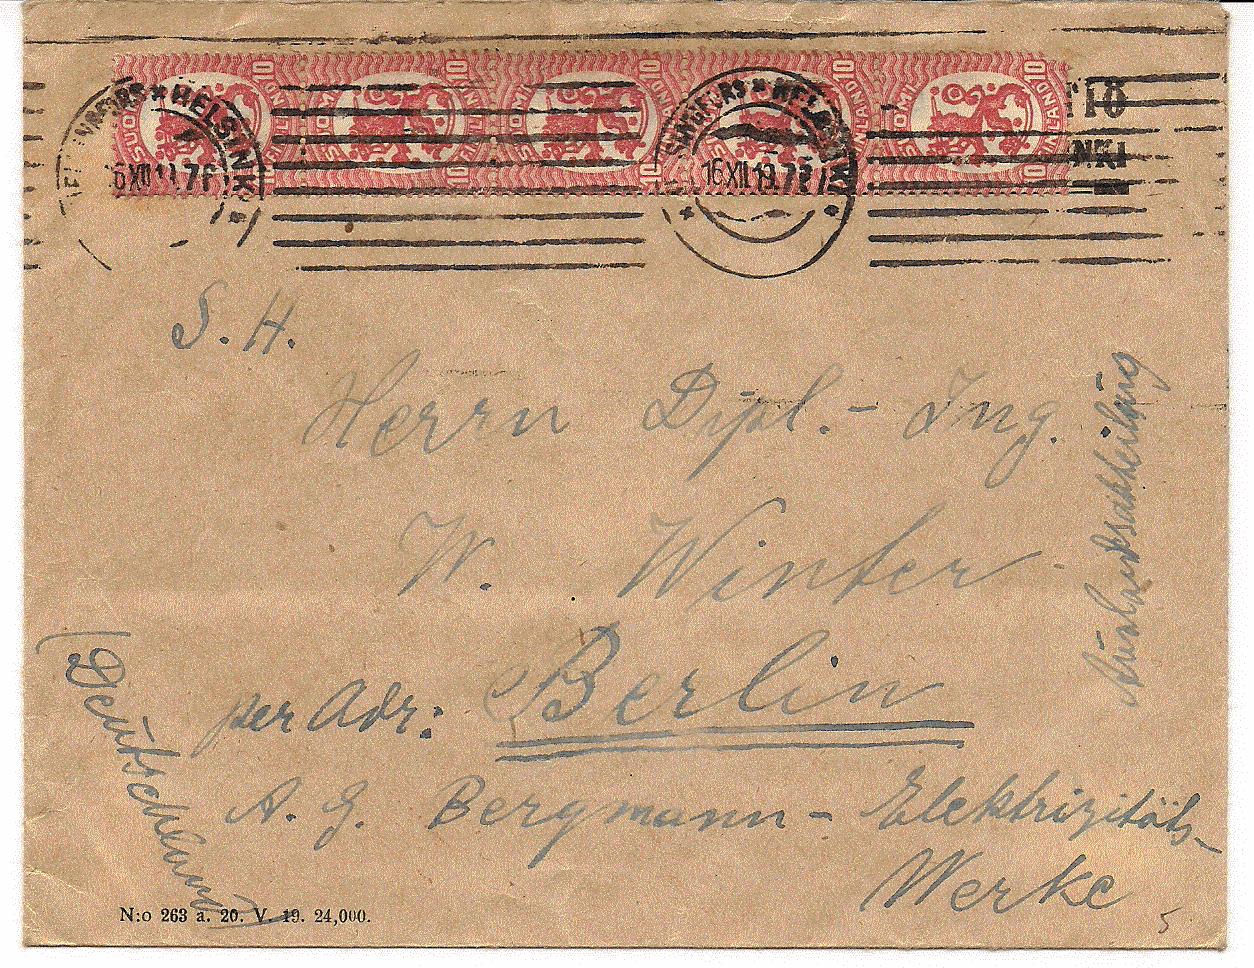 HELSINGFORS * HELSINKI *
16.XII.19.
HELSINGFORS * HELSINKI *
16.XII.19.
SUOMI FINLAND 10
SUOMI FINLAND 10
SUOMI FINLAND 10
SUOMI FINLAND 10
SUOMI FINLAND 10
NKI
S. H.
Herrn Dipl.-Ing.
W. Winter
per Adr: Berlin
A. G. Bergmann-Elektrizitäts-
Werke
Auslandsabteilung
(Deutschland)
N:o 263 a. 20. V. 19. 24,000.
5